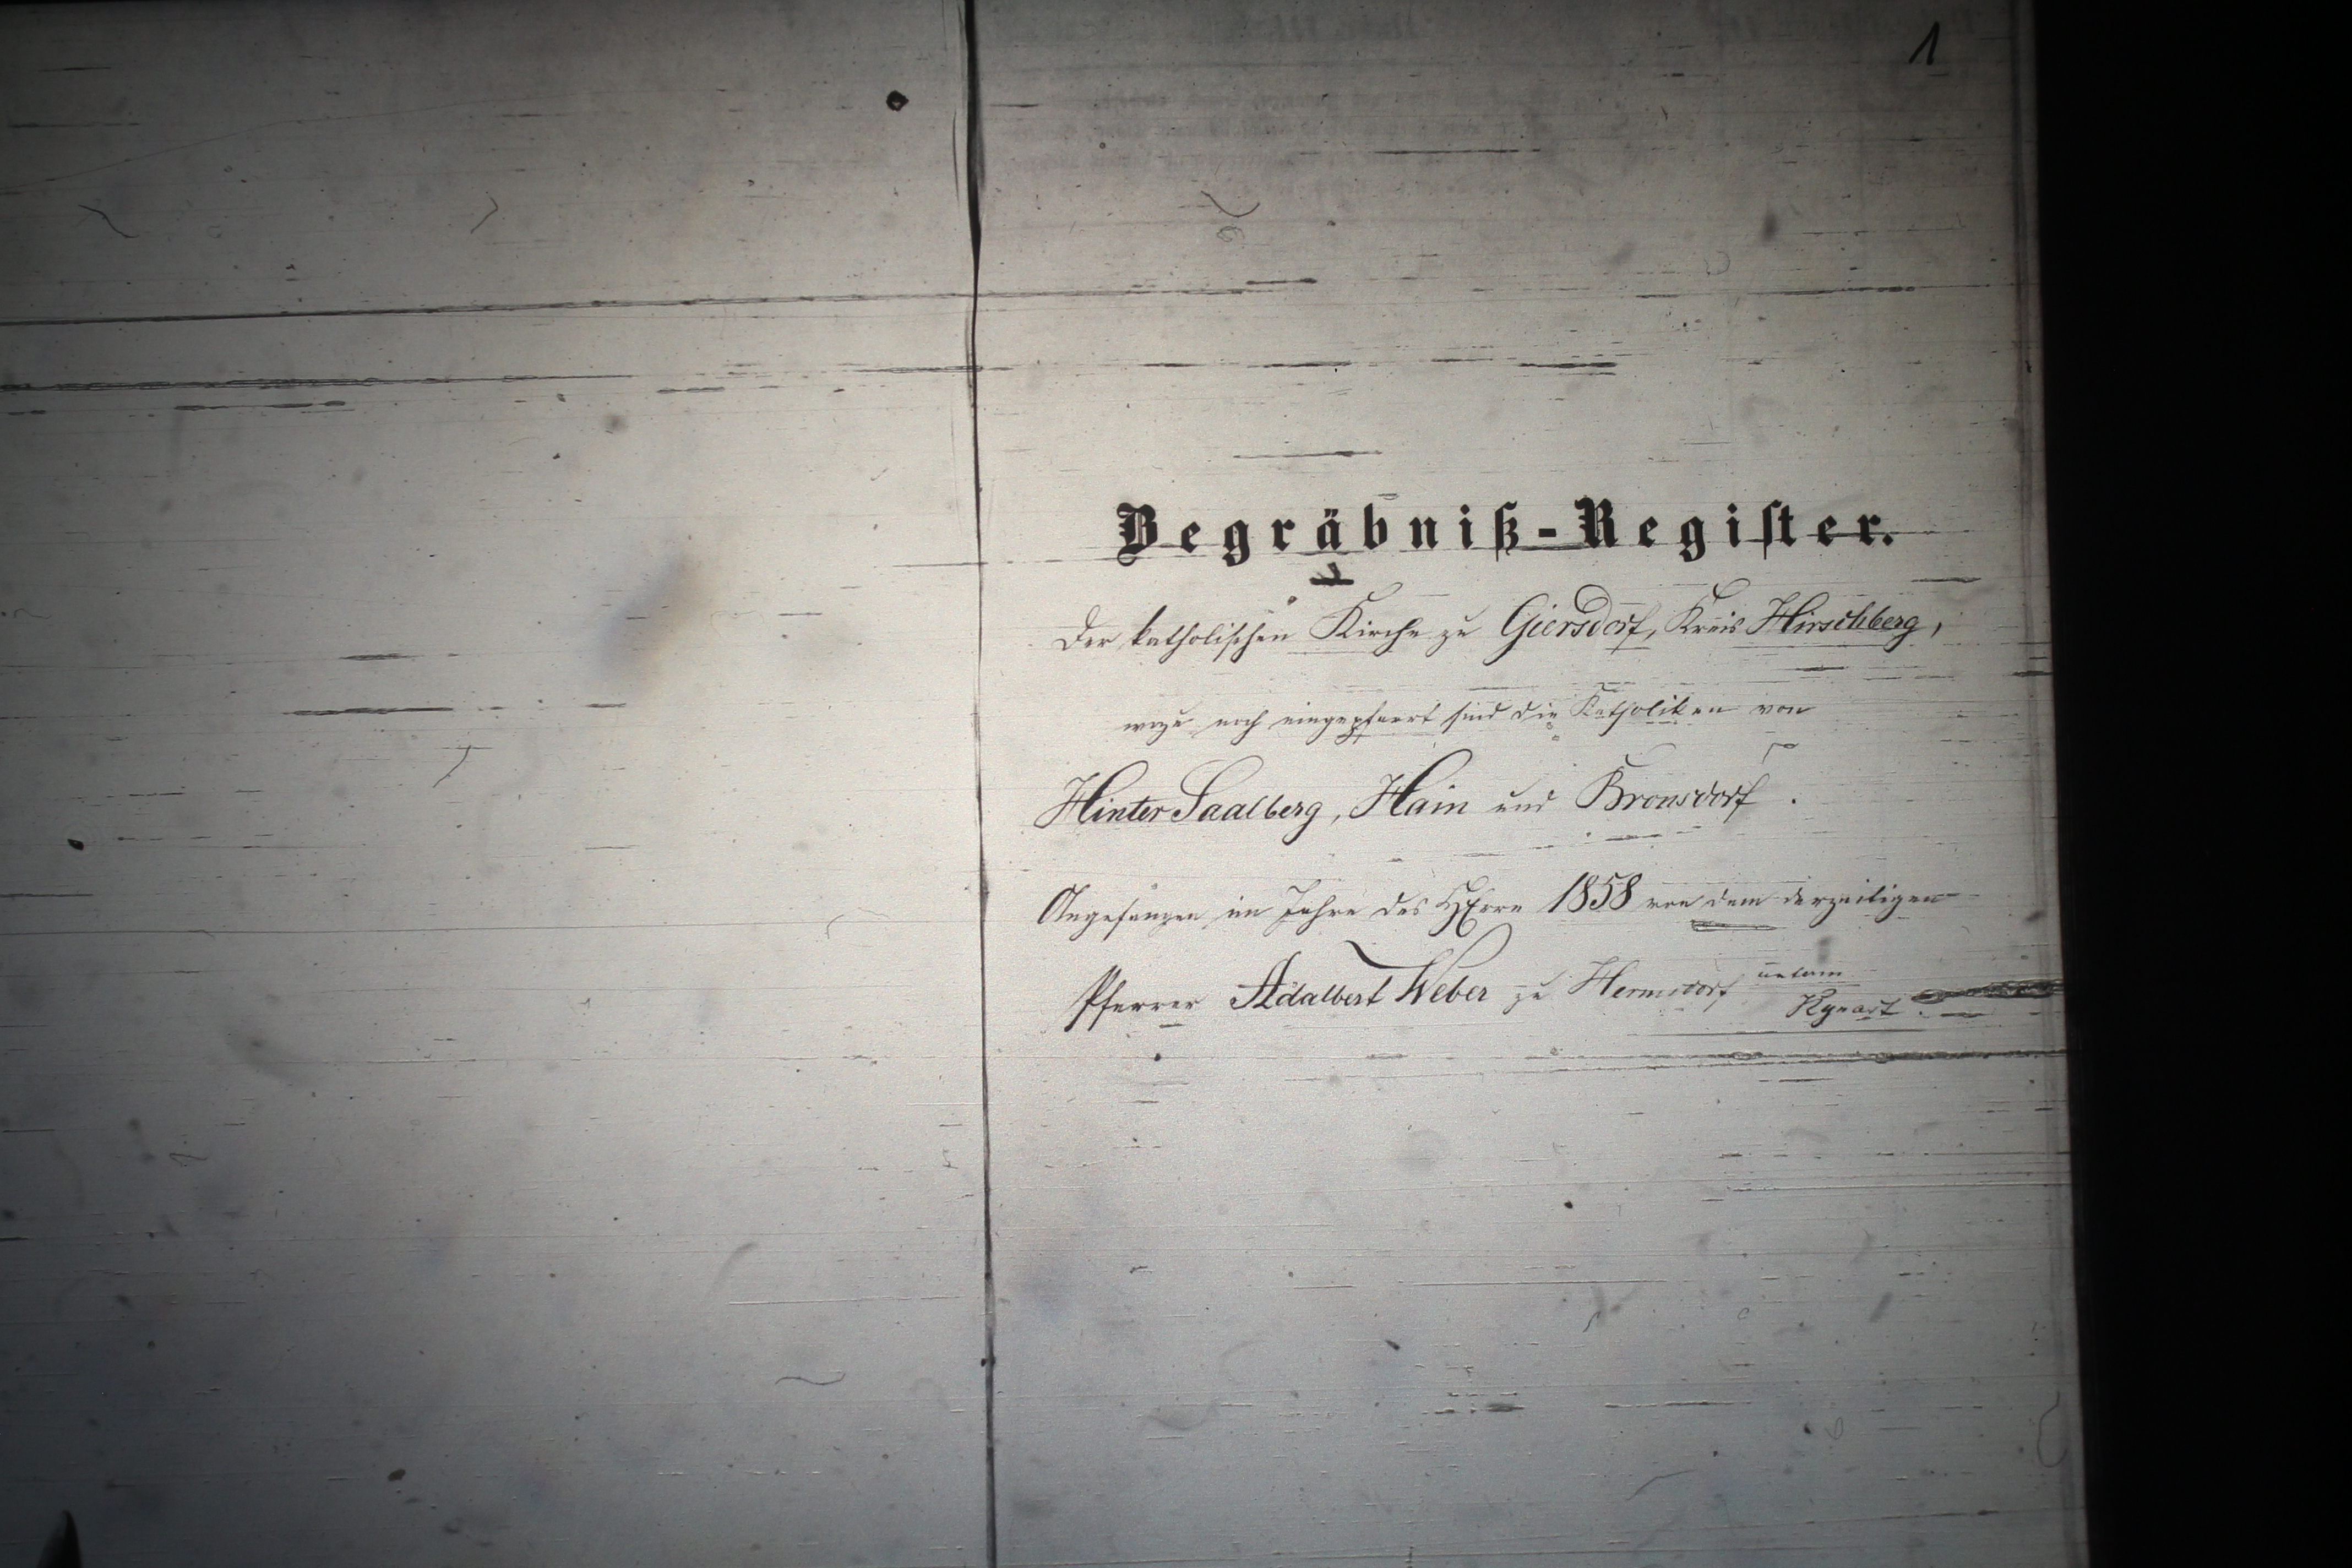 1
Begräbniß-Register.
Der katholischen Kirche zu Giersdorf, Kreis Hirschberg,
wozu noch eingepfarrt sind die Katholiken von
Hinter Saalberg, Hain und Bronsdorf.
Angefangen im Jahre des HErrn 1858 von dem derzeitigen
Pfarrer Adalbert Weber zu Hermsdorf unterm
Kynast.